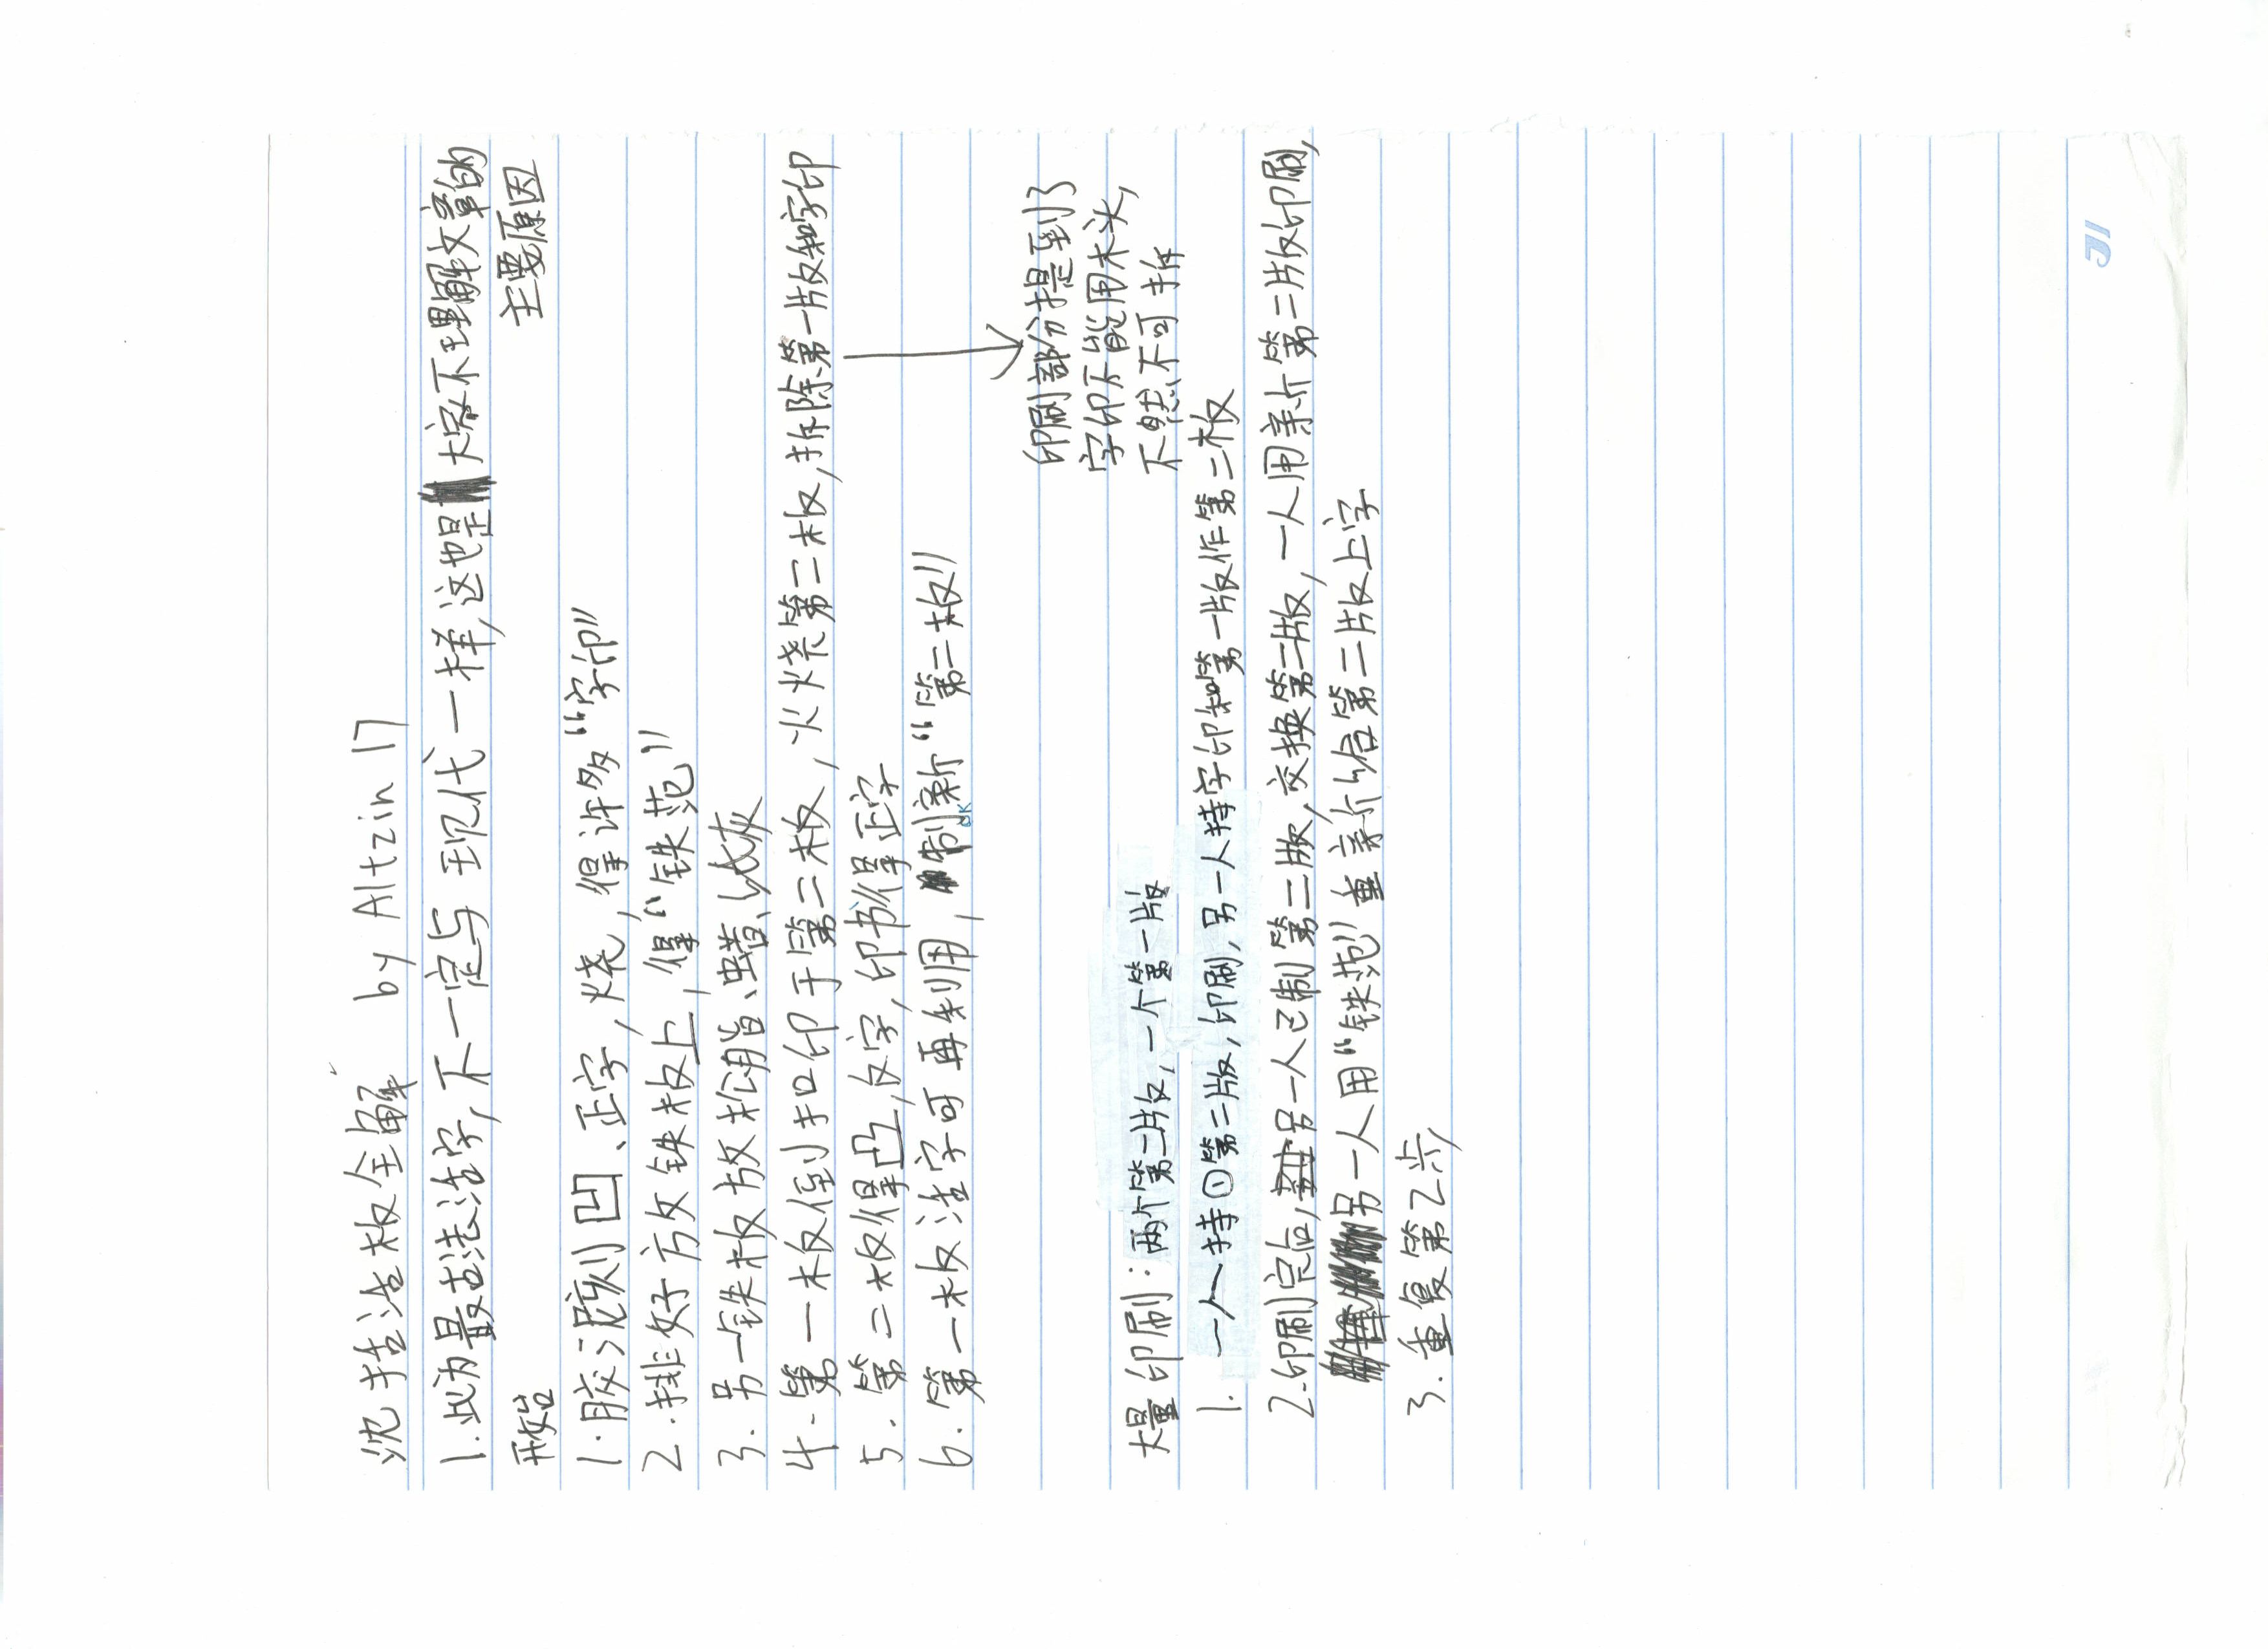 沈括活板全解 by Altzin 17
1.此为最古活字,不一定与现代一样,这也是大家不理解文章的
主要原因
开始
1.胶泥刻凹、正字,烧,得许多“字印”
2.排好方文铁板上,得“铁范”
3.另一铁板放松脂、蜡、以灰
4.第一板倒扣印于第二板,火烧第二板,拆除第一版和字印
印刷部分提到了
字印不能用木头,
不然不可拆
5.第二板得凸,反字,印书得正字
6.第一板活字可再利用,制新“第二板”
OK
大量印刷:两个第二版,一个第一版
1.一人持①第二版,印刷,另一人持字印和第一版作第二板
2.印刷完后,另一人已制第二版,交换第二版,一人用新第二版印刷,
另一人用“铁范”重新给第二版上字
3.重复第2步,